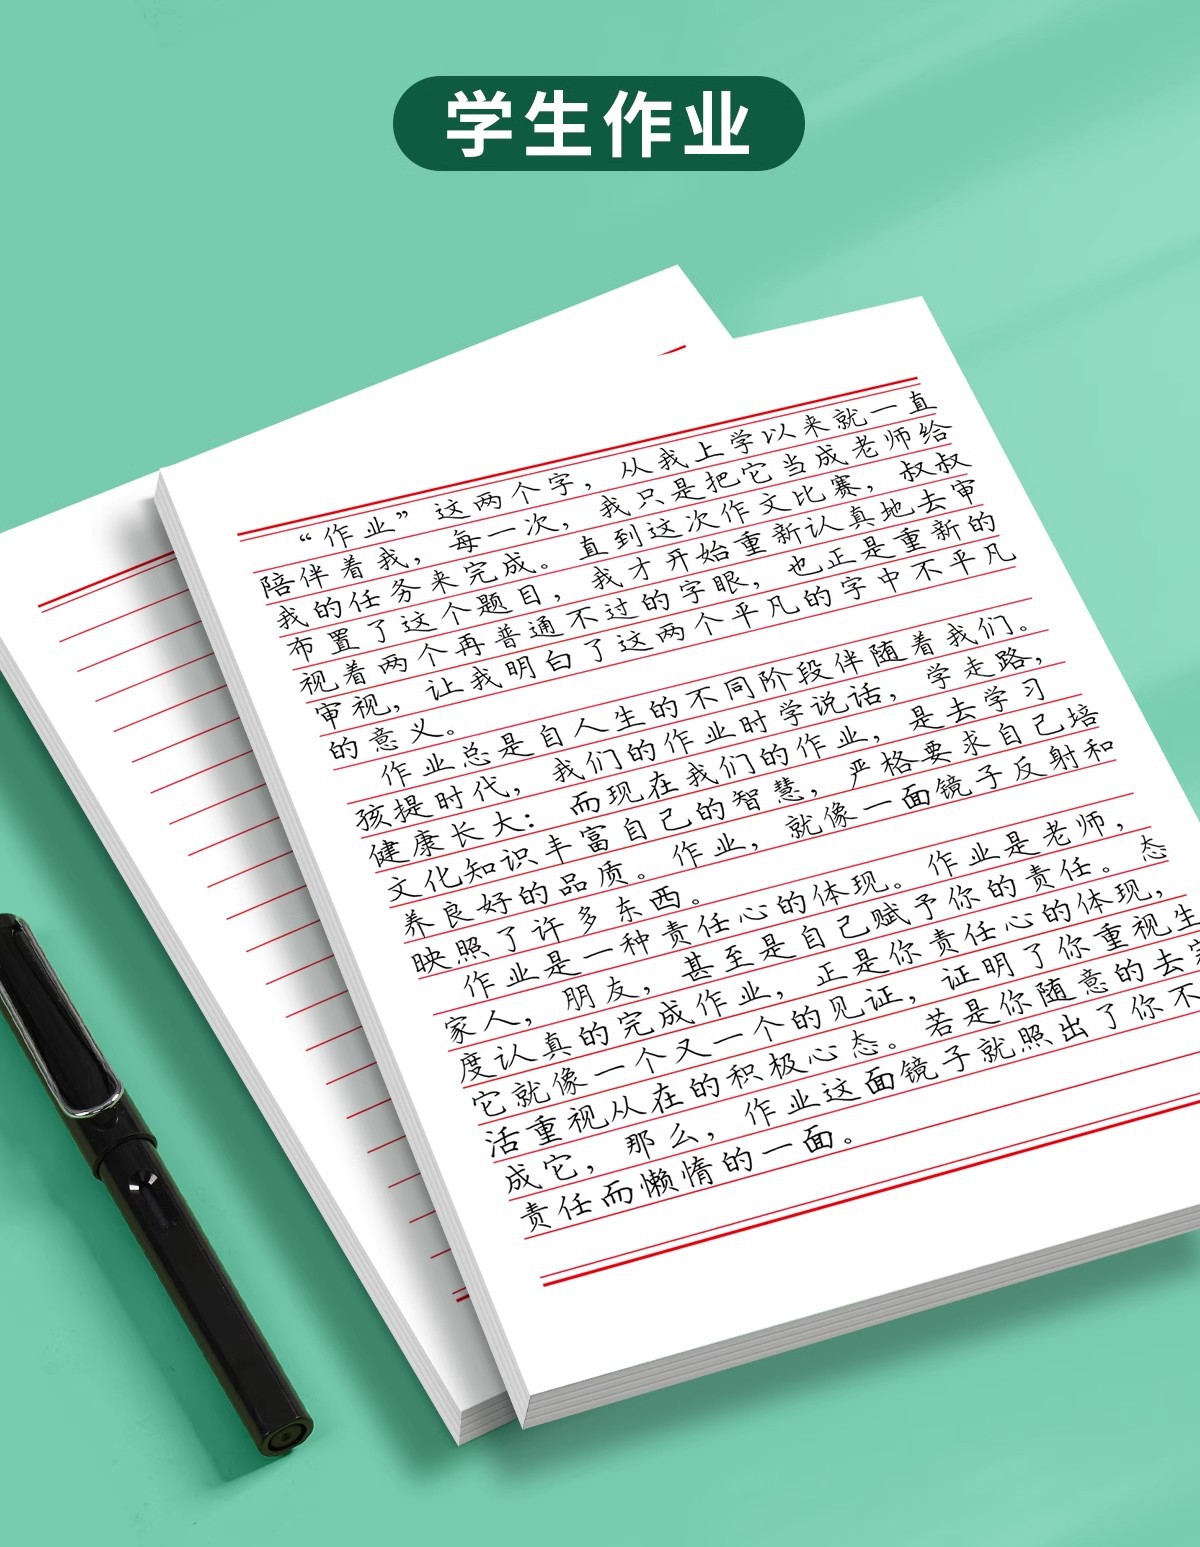 学生作业
“作业”这两个字，从我上学以来就一直
陪伴着我，每一次，我只是把它当成老师给
我的任务来完成。直到这次作文比赛，叔叔
布置了这个题目，我才开始重新认真地去审
视着两个再普通不过的字眼，也正是重新的
审视，让我明白了这两个平凡的字中不平凡
的意义。
作业总是自人生的不同阶段伴随着我们。
孩提时代，我们的作业时学说话，学走路，
健康长大：而现在我们的作业，是去学习
文化知识丰富自己的智慧，严格要求自己培
养良好的品质。作业，就像一面镜子反射和
映照了许多东西。
作业是一种责任心的体现。作业是老师，
家人，朋友，甚至是自己赋予你的责任。态
度认真的完成作业，正是你责任心的体现，
它就像一个又一个的见证，证明了你重视生
活重视从在的积极心态。若是你随意的去完
成它，那么，作业这面镜子就照出了你不
责任而懒惰的一面。